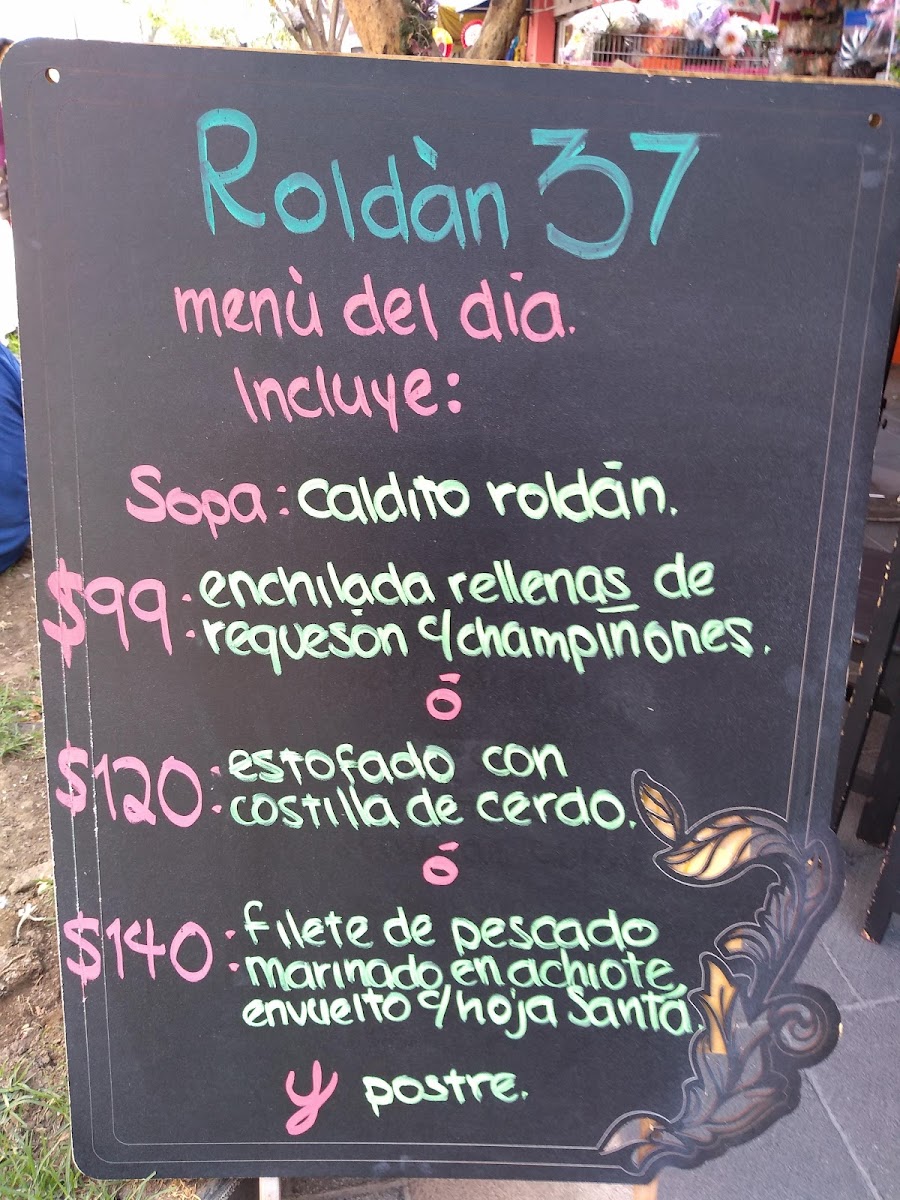 Roldàn 37
menù del dia.
Incluye:
Sopa: Caldito roldán.
$99: enchilada rellenas de
requesón c/champiñones.
ó
$120: estofado con
costilla de cerdo.
ó
$140: filete de pescado
marinado en achiote
envuelto c/hoja Santa.
y postre.